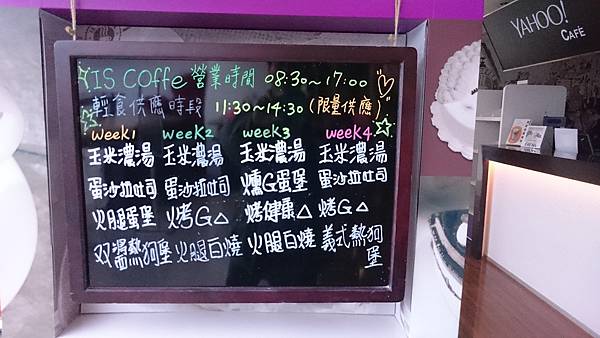 IS Coffe 營業時間 08:30~17:00
輕食供應時段 11:30~14:30 (限量供應)
week1 week2 week3 week4
玉米濃湯 玉米濃湯 玉米濃湯 玉米濃湯
蛋沙拉吐司 蛋沙拉吐司 燻G蛋堡 蛋沙拉吐司
火腿蛋堡 烤G△ 烤健康△ 烤G△
双溫熱狗堡 火腿白燒 火腿白燒 義式熱狗堡
YAHOO!
CAFÉ